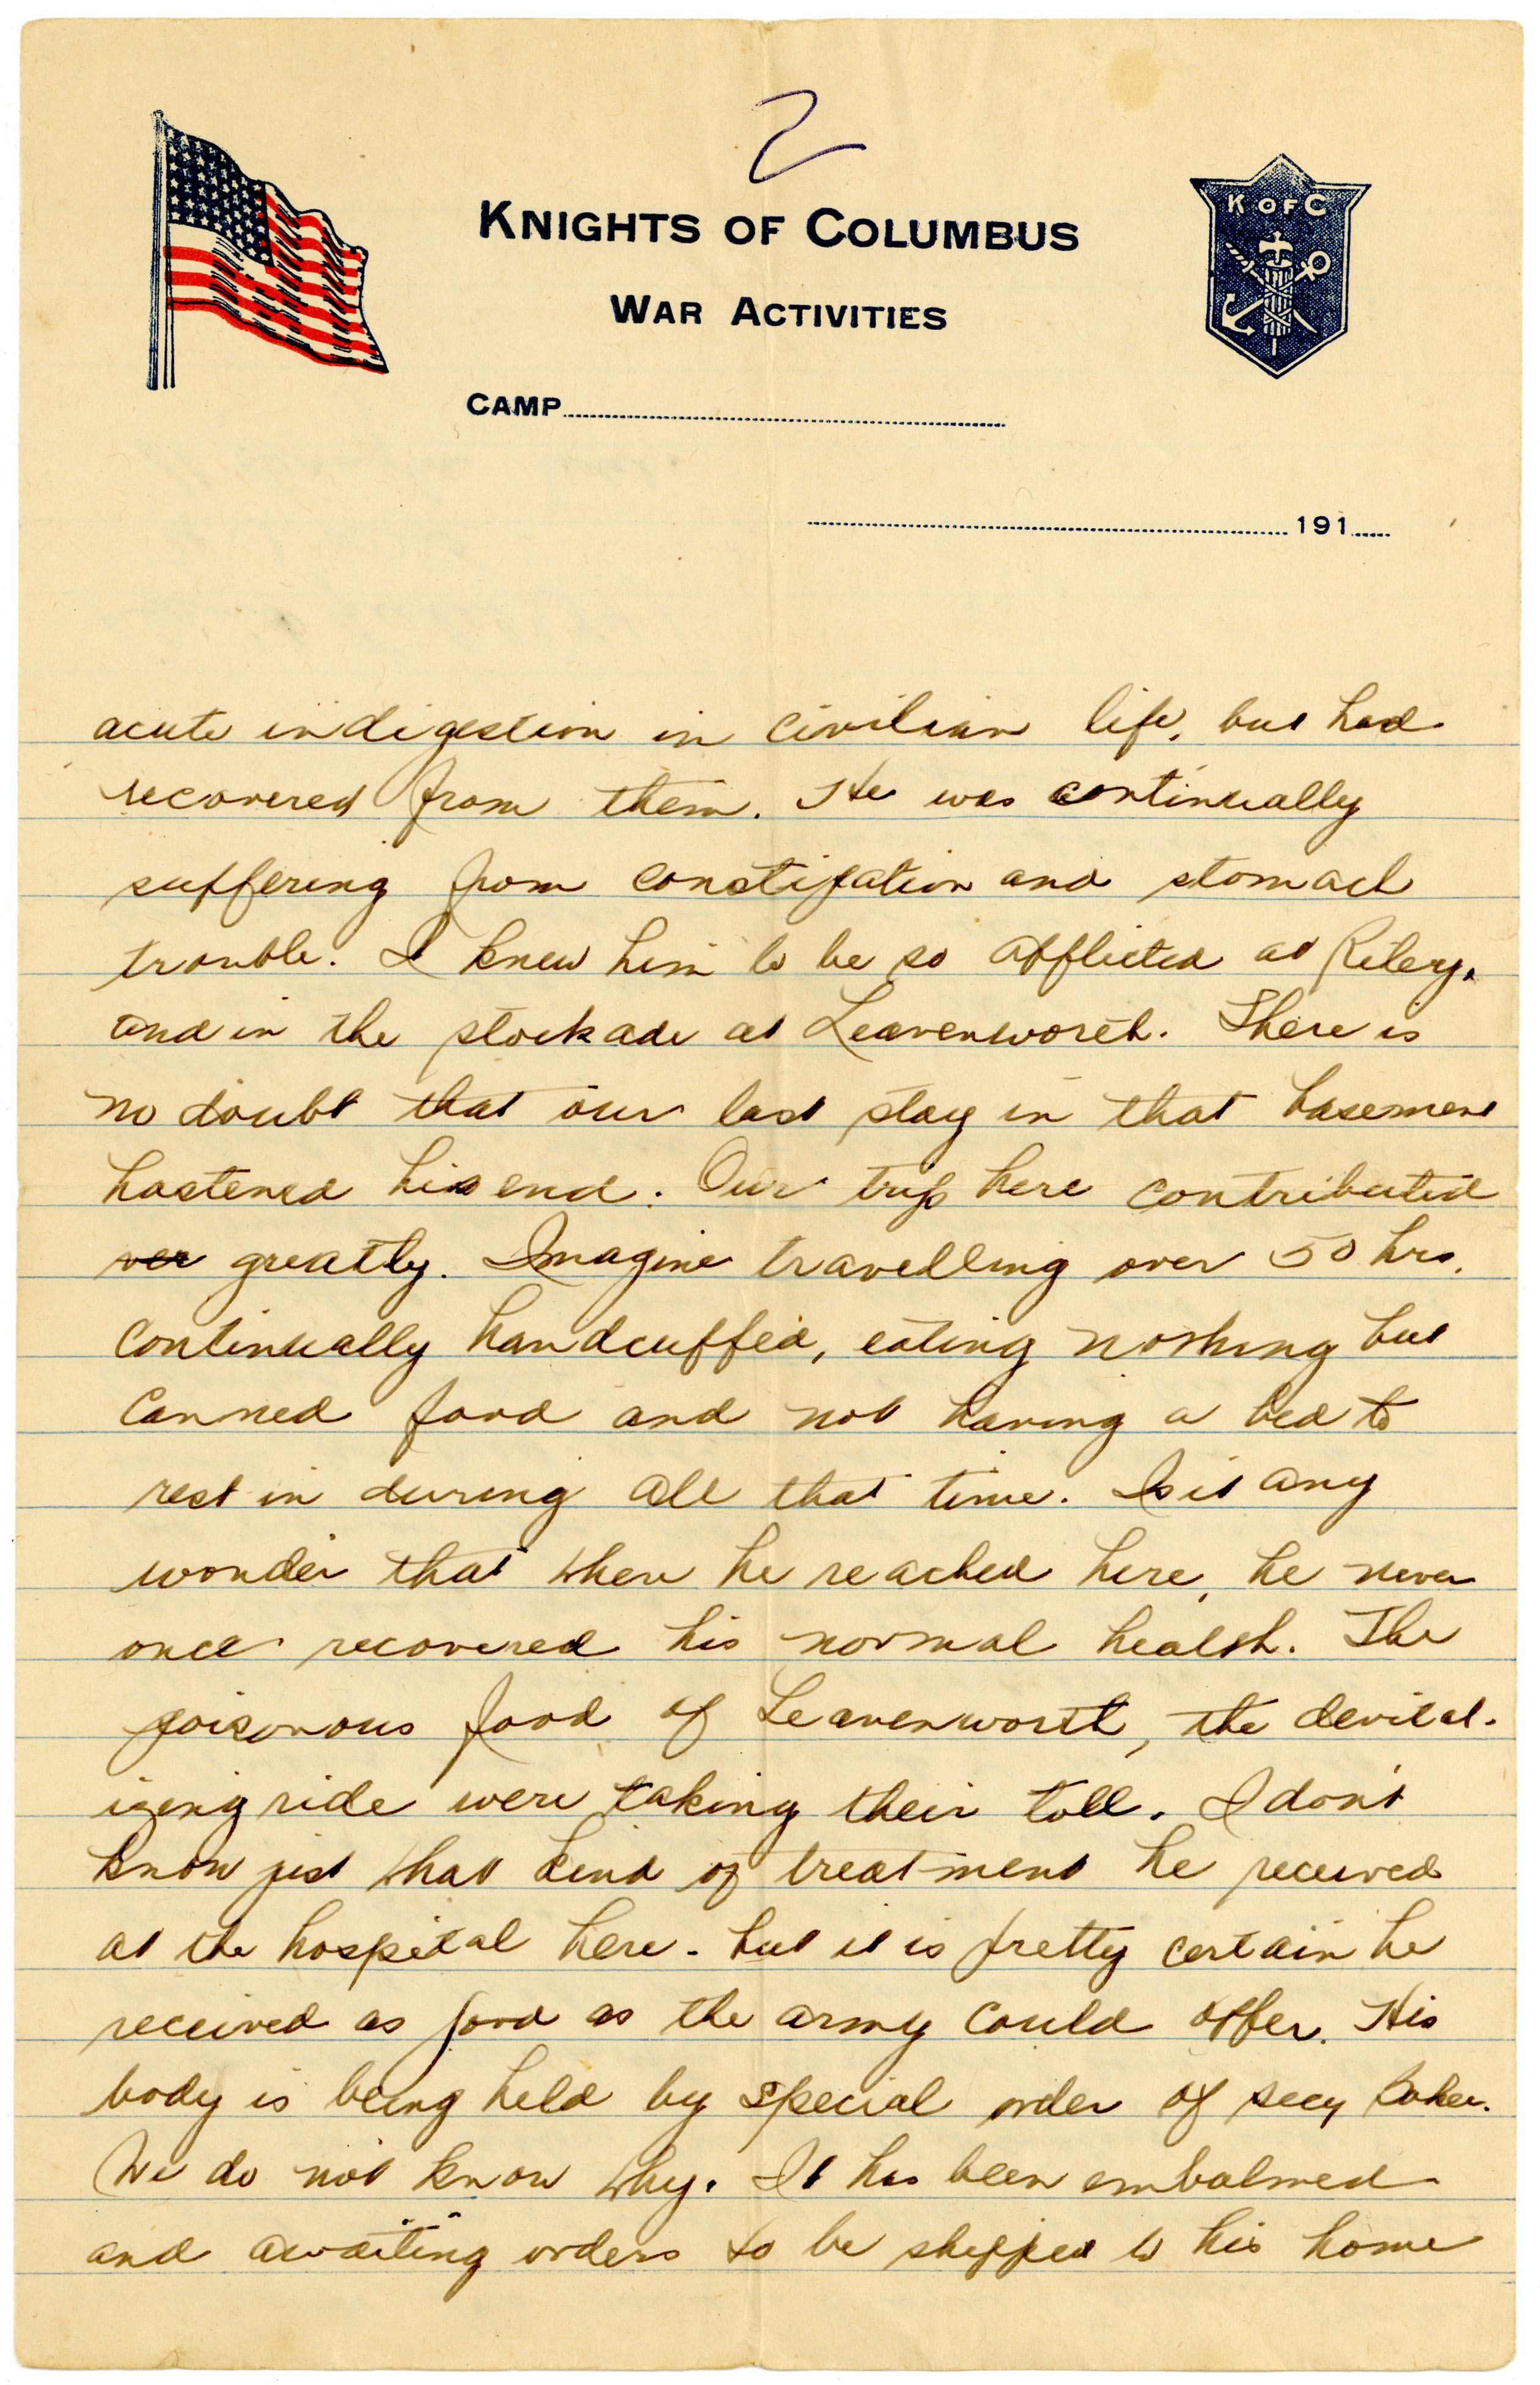 2
KNIGHTS OF COLUMBUS
K OF C
WAR ACTIVITIES
CAMP
191
acute indigestion in civilian life, but had
recovered from them. He was continually
suffering from constipation and stomach
trouble. I knew him to be so afflicted at Riley.
and in the stockade at Leavenworth. There is
no doubt that our last stay in that basement
hastened his end. Our trip here contributed
ver greatly. Imagine travelling over 50 hrs.
continually handcuffed, eating nothing but
canned food and not having a bed to
rest in during all that time. Is it any
wonder that when he reached here, he never
once recovered his normal health. The
poisonous food of Leavenworth, the devital-
izing ride were taking their toll. I don't
know just what kind of treatment he received
at the hospital here - but it is pretty certain he
received as good as the army could offer. His
body is being held by special order of secy Baker.
We do not know why. It has been embalmed
and awaiting orders to be shipped to his home